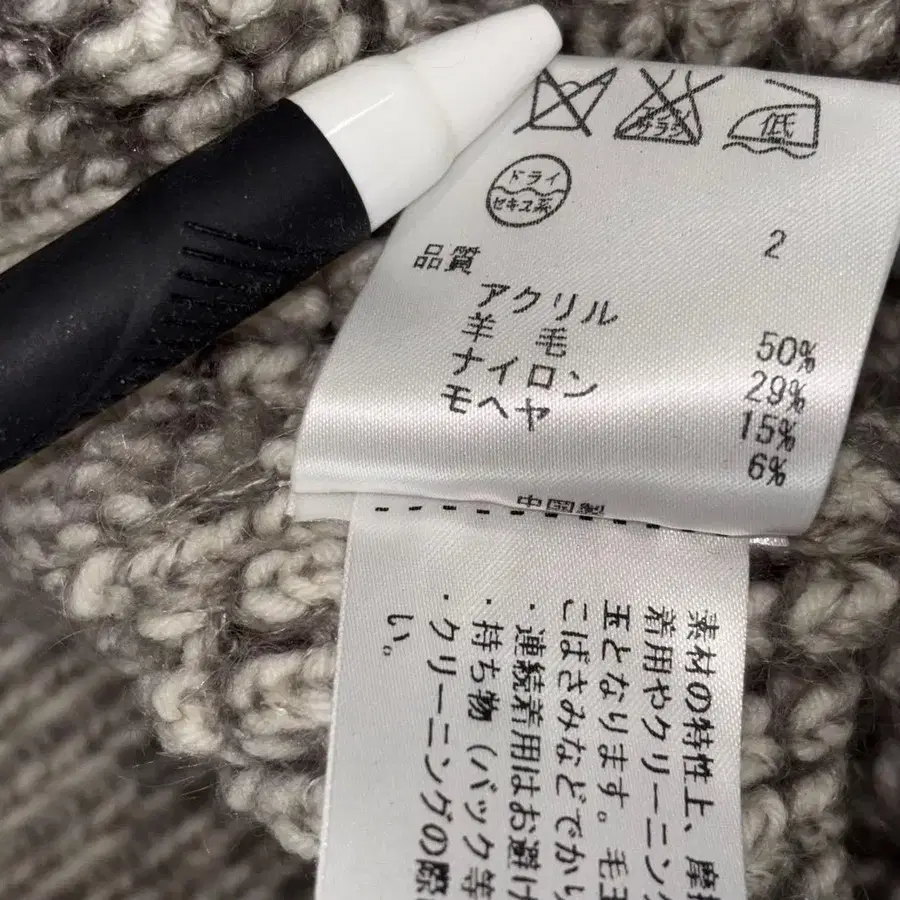 低
ドライ
セキユ系
2
品質
アクリル 50%
羊毛 29%
ナイロン 15%
モヘヤ 6%
中国製
素材の特性上、摩
着用やクリーニン
玉となります。毛玉
こばさみなどでか
・連続着用はお避け
・持ち物（バック等
・クリーニングの際
い。